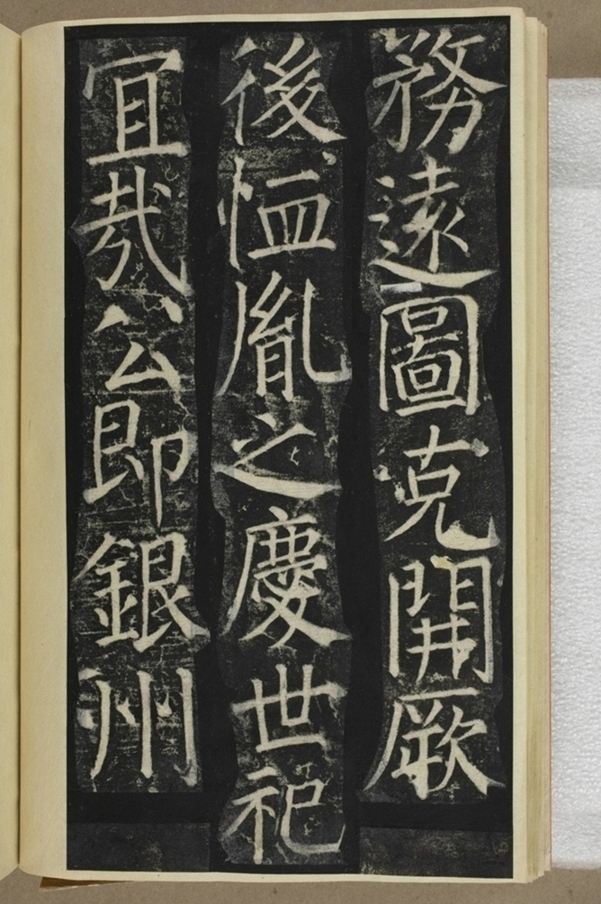 務遠圖克開厥
後恤胤之慶世祀
宜㢤公即銀州